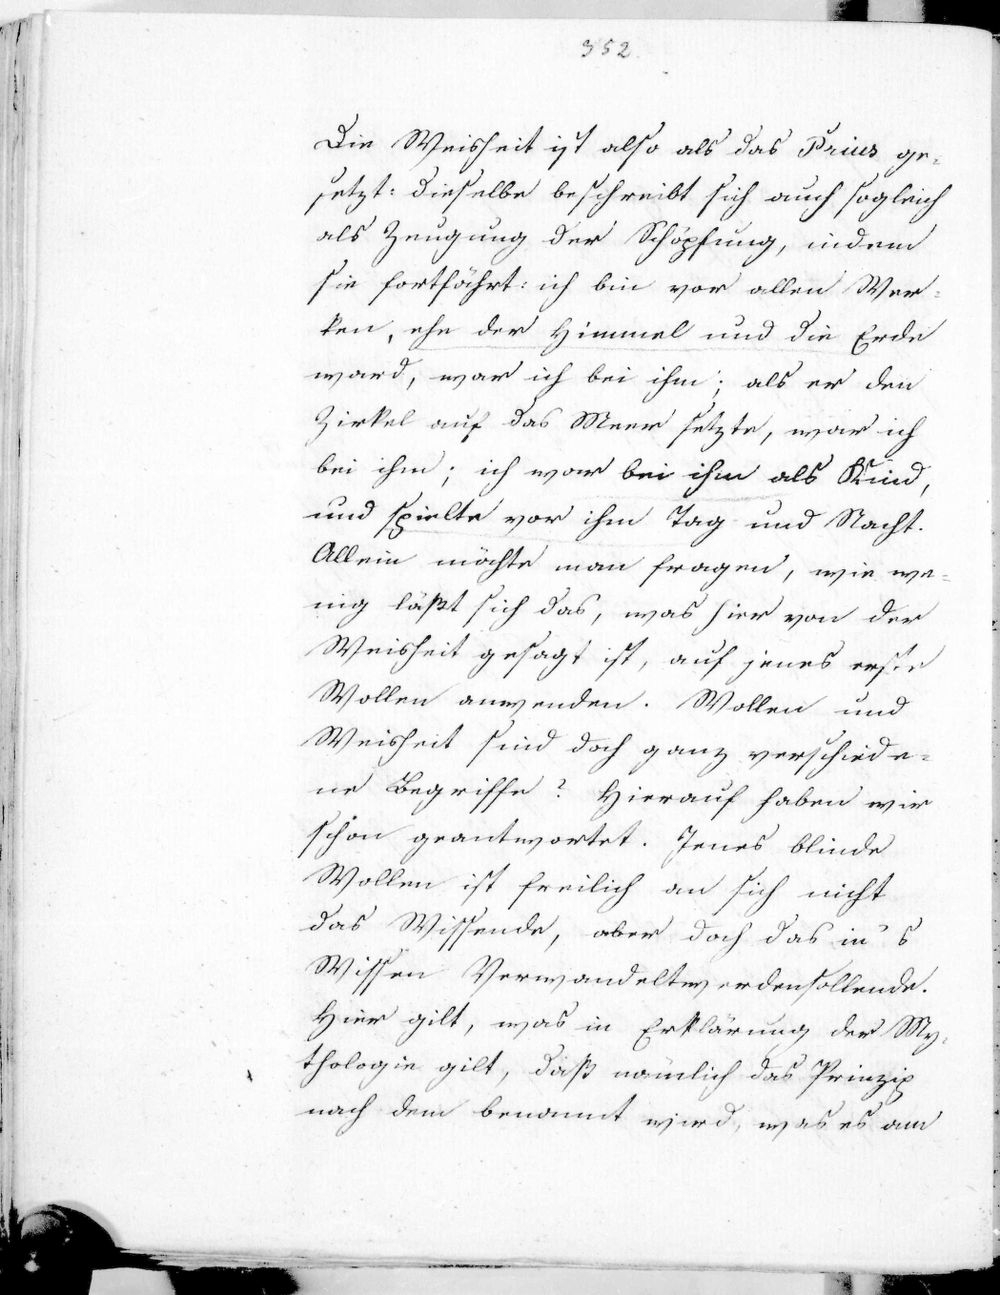 352.
Die Weisheit ist also als das Prius ge-
setzt: dieselbe beschreibt sich auch sogleich
als Zeugung der Schöpfung, indem
sie fortfährt: ich bin vor allen Wer-
ken, ehe der Himmel und die Erde
ward, war ich bei ihm; als er den
Zirkel auf das Meer setzte, war ich
bei ihm; ich war bei ihm als Kind,
und spielte vor ihm Tag und Nacht.
Allein möchte man fragen, wie we-
nig läßt sich das, was hier von der
Weisheit gesagt ist, auf jenes erste
Wollen anwenden. Wollen und
Weisheit sind doch ganz verschiede-
ne Begriffe? Hierauf haben wir
schon geantwortet. Jenes blinde
Wollen ist freilich an sich nicht
das Wissende, aber doch das in's
Wissen Verwandeltwerdensollende.
Hier gilt, was in Erklärung der My-
thologie gilt, daß nämlich das Prinzip
nach dem benannt wird, was es am